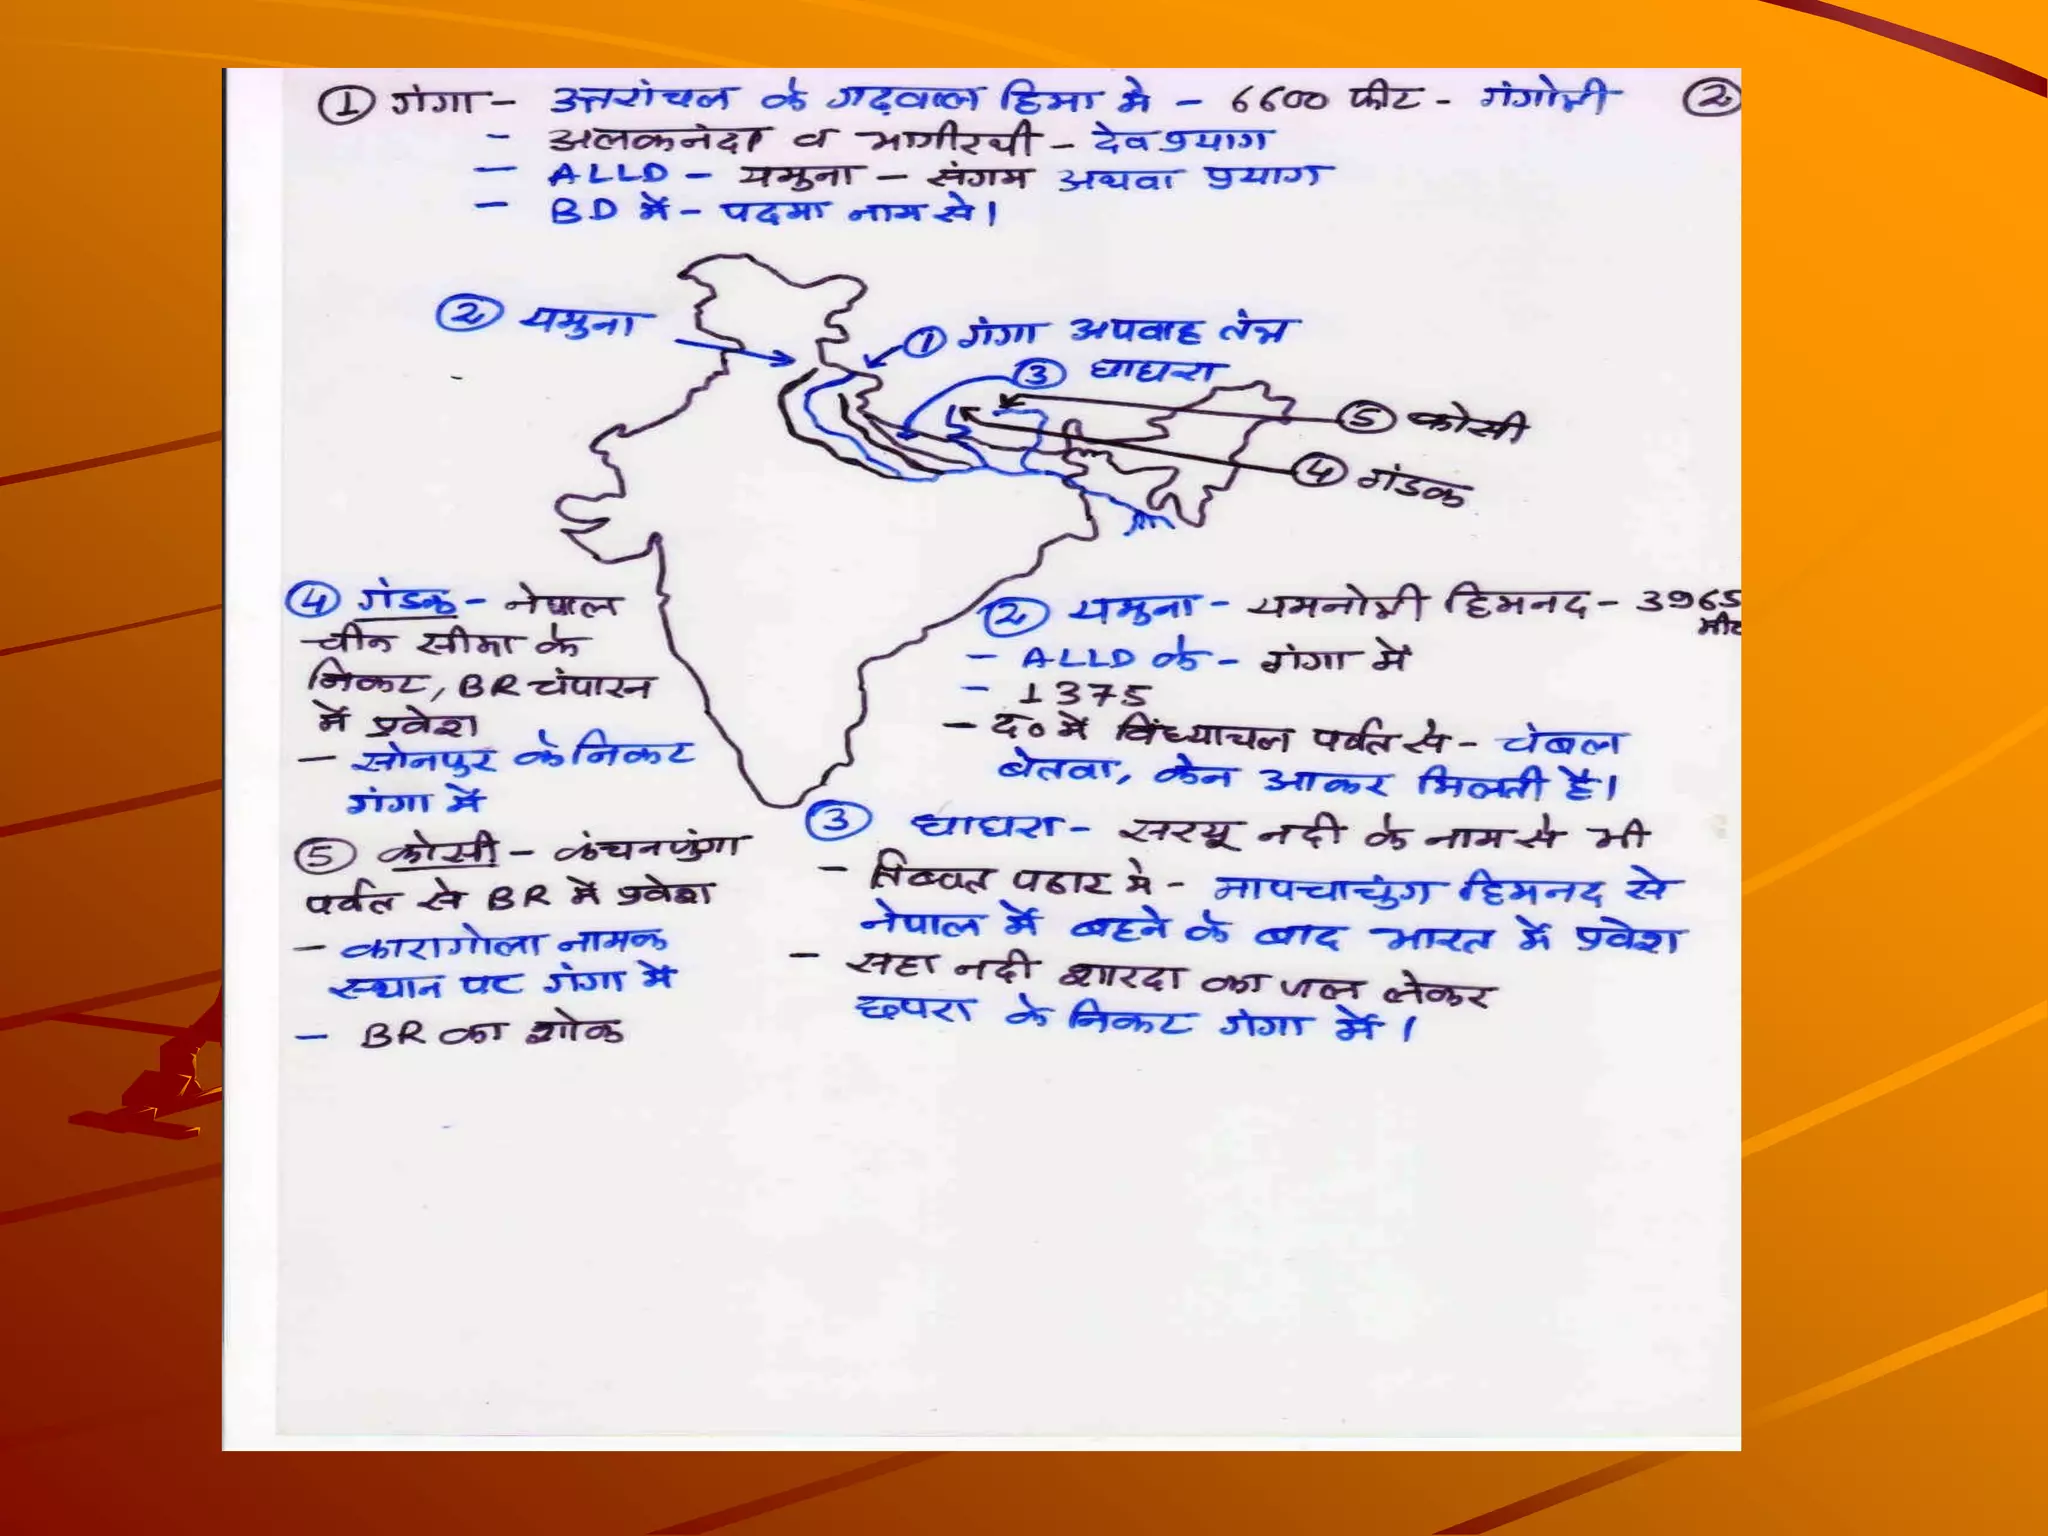 ① गंगा - उत्तरांचल के गढ़वाल हिमा मे - 6600 फीट - गंगोत्री ②
- अलकनंदा व भागीरथी - देवप्रयाग
- ALLD - यमुना - संगम अथवा प्रयाग
- BD में - पदमा नाम से।
② यमुना
① गंगा अपवाह तंत्र
③ घाघरा
⑤ कोसी
④ गंडक
④ गंडक - नेपाल
चीन सीमा के
निकट, BR चंपारन
में प्रवेश
- सोनपुर के निकट
गंगा में
⑤ कोसी - कंचनजुंगा
पर्वत से BR में प्रवेश
- कारागोला नामक
स्थान पर गंगा में
- BR का शोक
② यमुना - यमनोत्री हिमनद - 3965
मीट
- ALLD के - गंगा में
- 1375
- द० में विंध्याचल पर्वत से - चंबल
बेतवा, केन आकर मिलती है।
③ घाघरा - सरयू नदी के नाम से भी
- तिब्बत पठार मे - मापचाचुंग हिमनद से
नेपाल में बहने के बाद भारत में प्रवेश
- सहा नदी शारदा का जल लेकर
छपरा के निकट गंगा में।